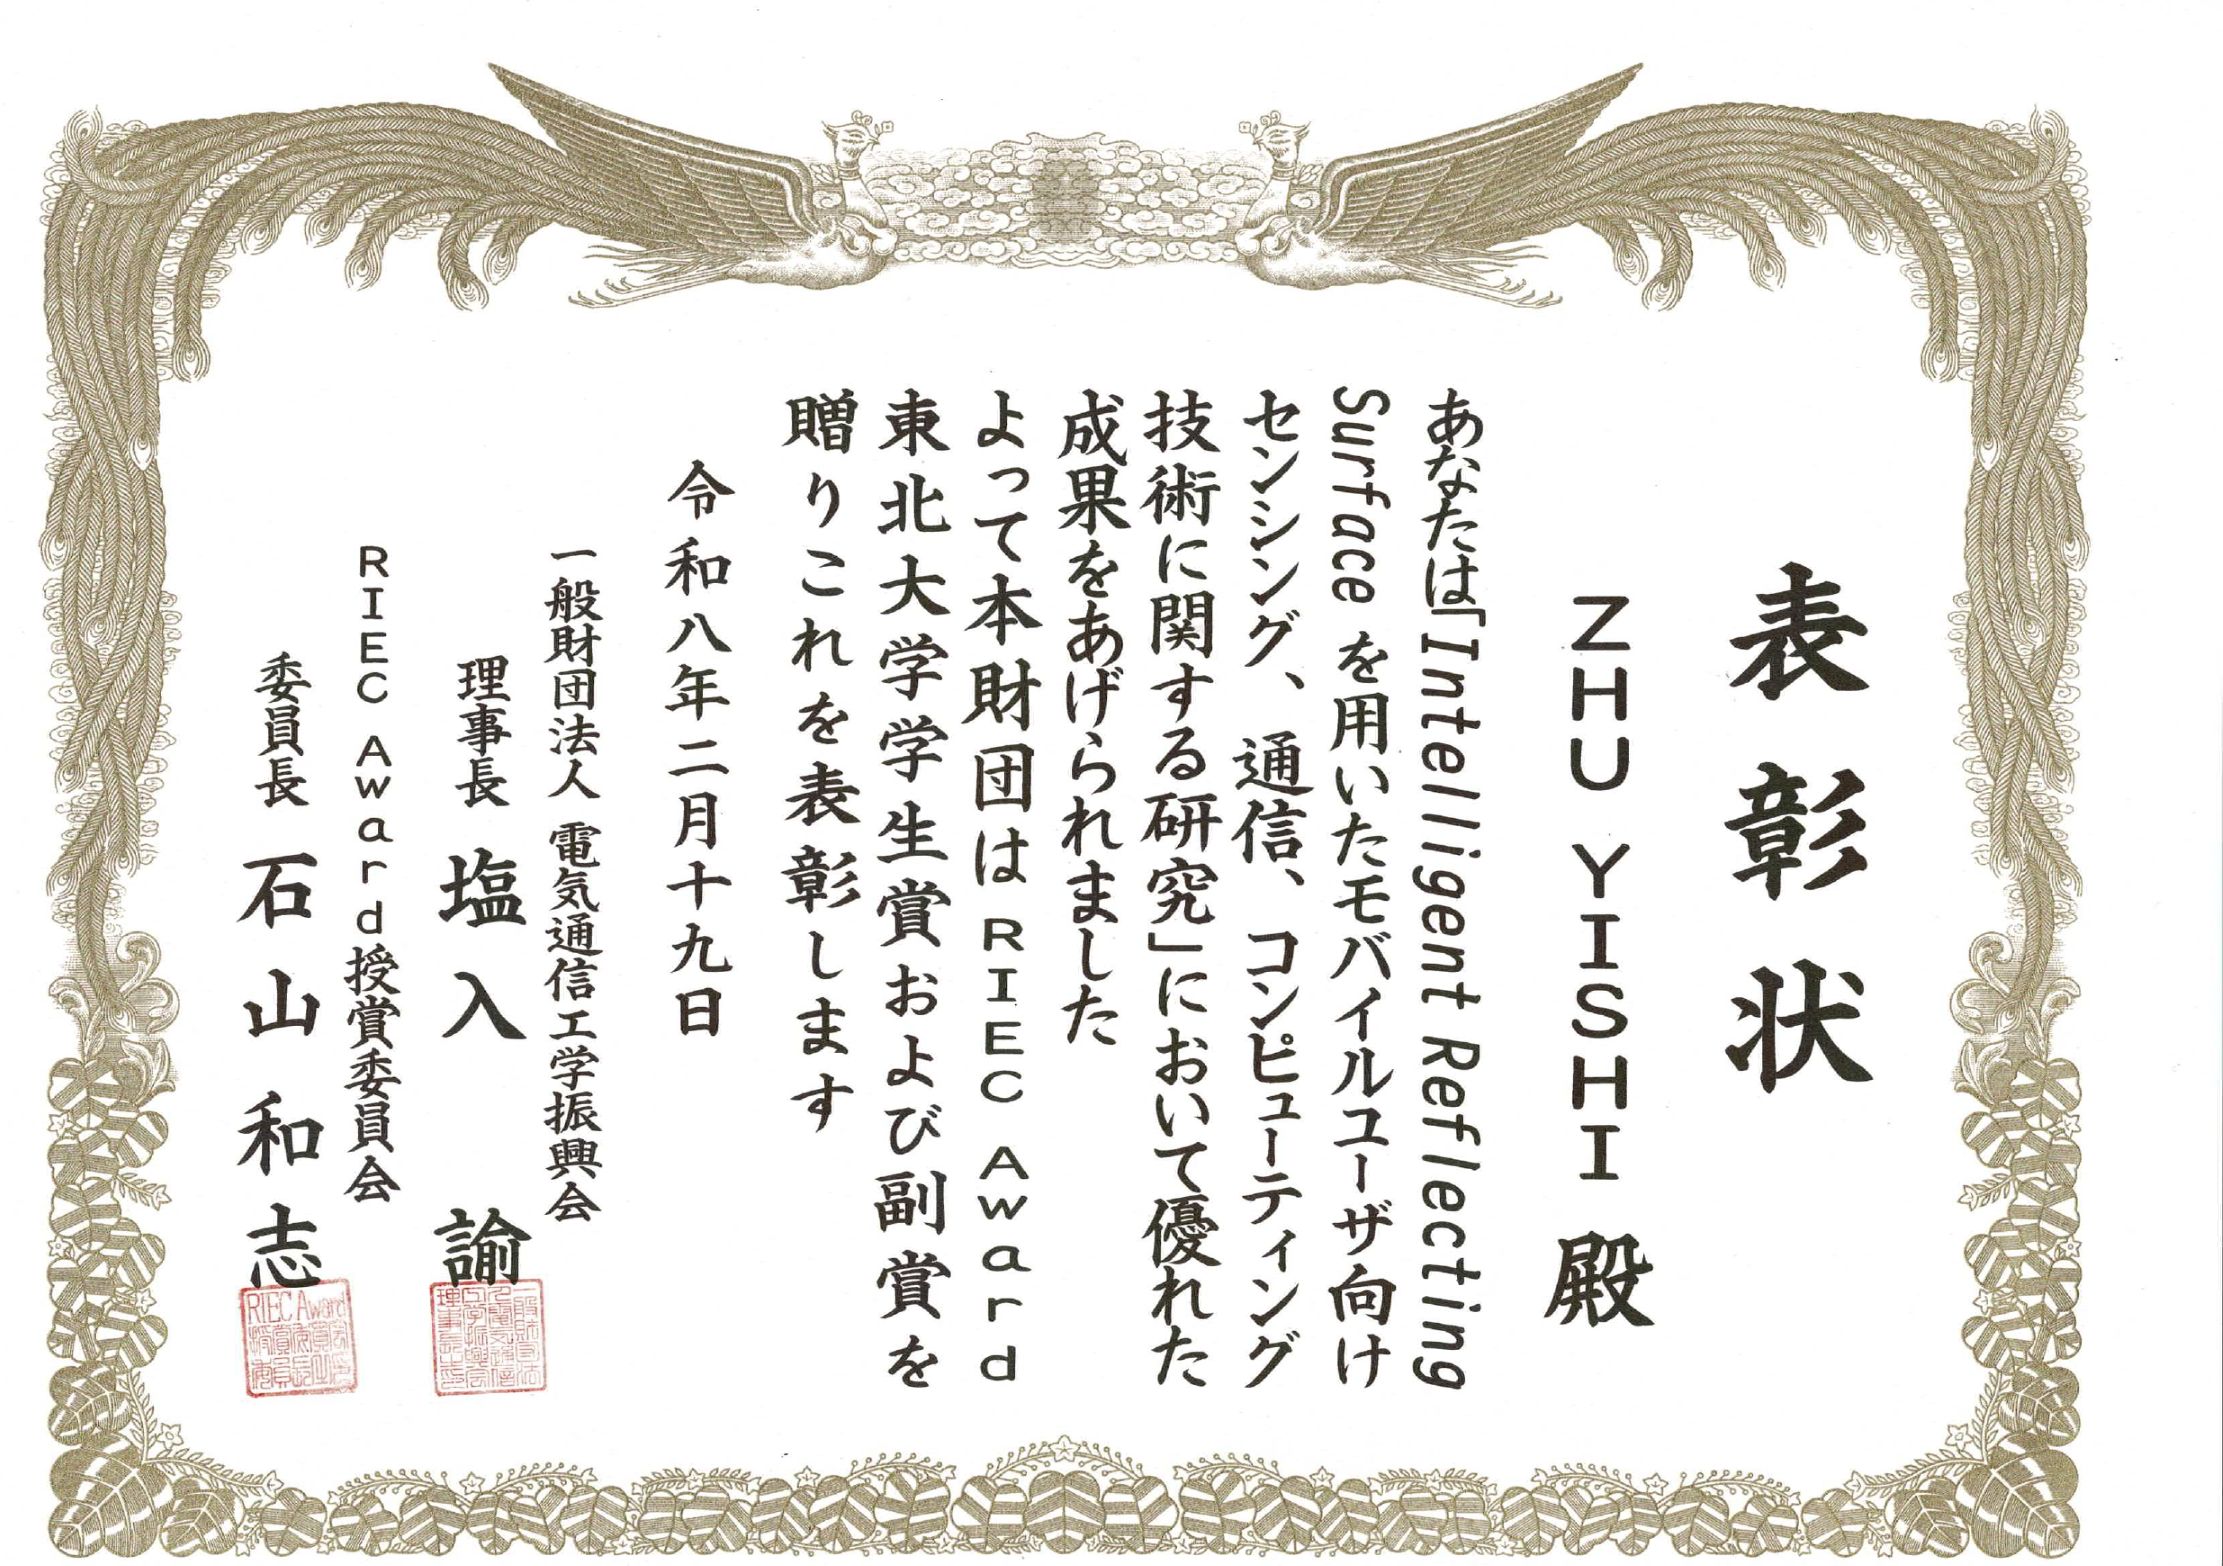 表彰状
ZHU YISHI 殿
あなたは「Intelligent Reflecting
Surface を用いたモバイルユーザ向け
センシング、通信、コンピューティング
技術に関する研究」において優れた
成果をあげられました
よって本財団は RIEC Award
東北大学学生賞および副賞を
贈りこれを表彰します
令和八年二月十九日
一般財団法人 電気通信工学振興会
理事長 塩入 諭
RIEC Award授賞委員会
委員長 石山和志
RIEC Award